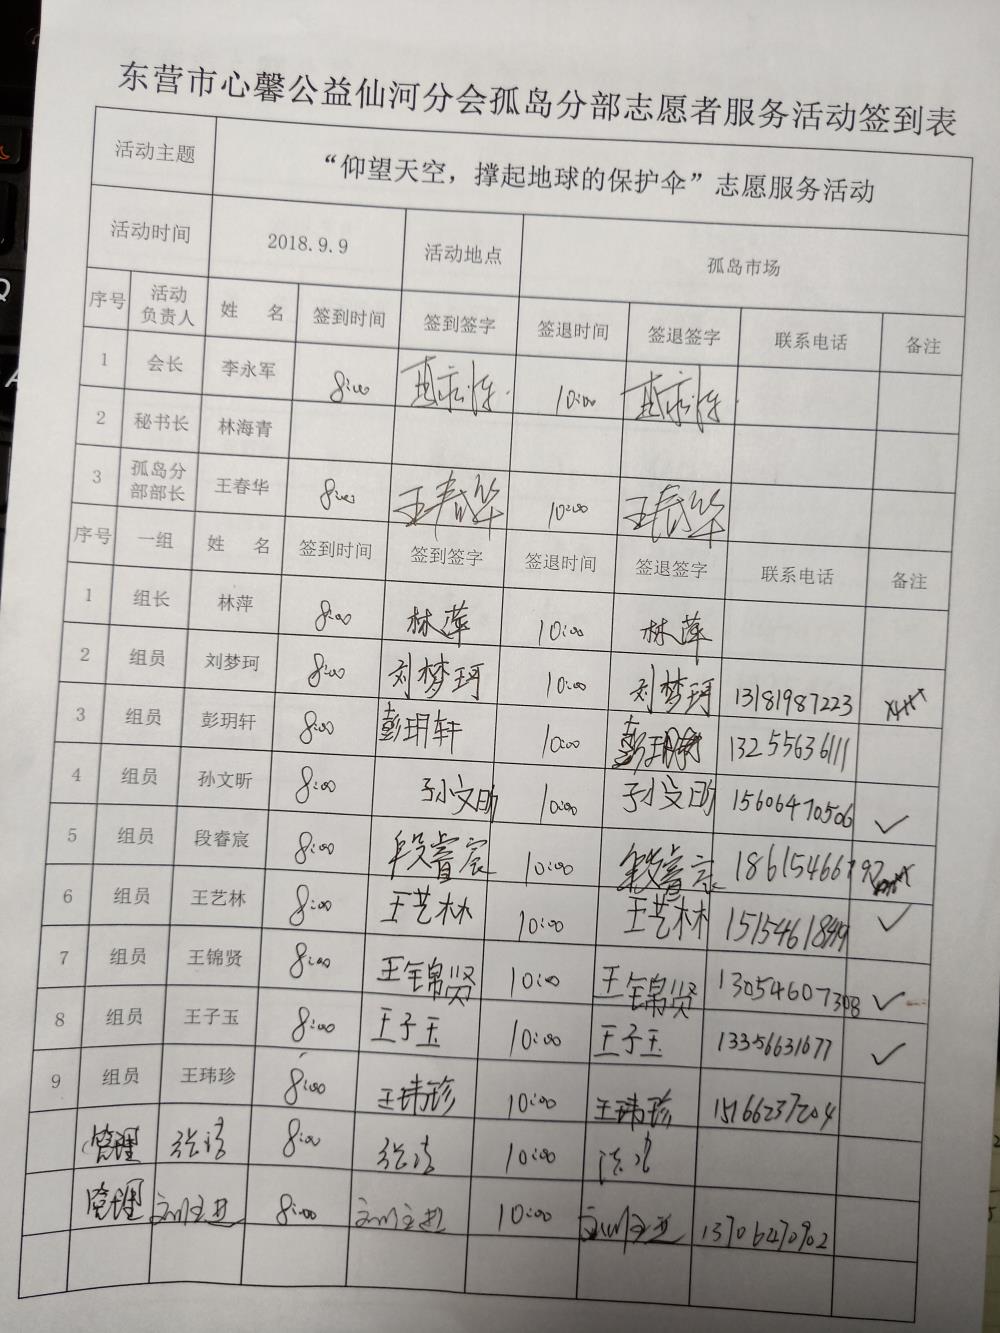 东营市心馨公益仙河分会孤岛分部志愿者服务活动签到表
活动主题 “仰望天空，撑起地球的保护伞”志愿服务活动
活动时间 2018.9.9 活动地点 孤岛市场
序号 活动负责人 姓 名 签到时间 签到签字 签退时间 签退签字 联系电话 备注
1 会长 李永军 8:00 10:00
2 秘书长 林海青
3 孤岛分部部长 王春华 8:00 王春华 10:00 王春华
序号 一组 姓 名 签到时间 签到签字 签退时间 签退签字 联系电话 备注
1 组长 林萍 8:00 林萍 10:00 林萍
2 组员 刘梦珂 8:00 刘梦珂 10:00 刘梦珂 13181987223
3 组员 彭玥轩 8:00 彭玥轩 10:00 彭玥轩 13255636111
4 组员 孙文昕 8:00 孙文昕 10:00 孙文昕 15606470506 ✓
5 组员 段睿宸 8:00 段睿宸 10:00 段睿宸
6 组员 王艺林 8:00 王艺林 10:00 王艺林 ✓
7 组员 王锦贤 8:00 王锦贤 10:00 王锦贤 13054607308 ✓
8 组员 王子玉 8:00 王子玉 10:00 王子玉 13356631677 ✓
9 组员 王玮珍 8:00 王玮珍 10:00 王玮珍 15166237204
管理 8:00 10:00
管理 8:00 10:00 13706470902